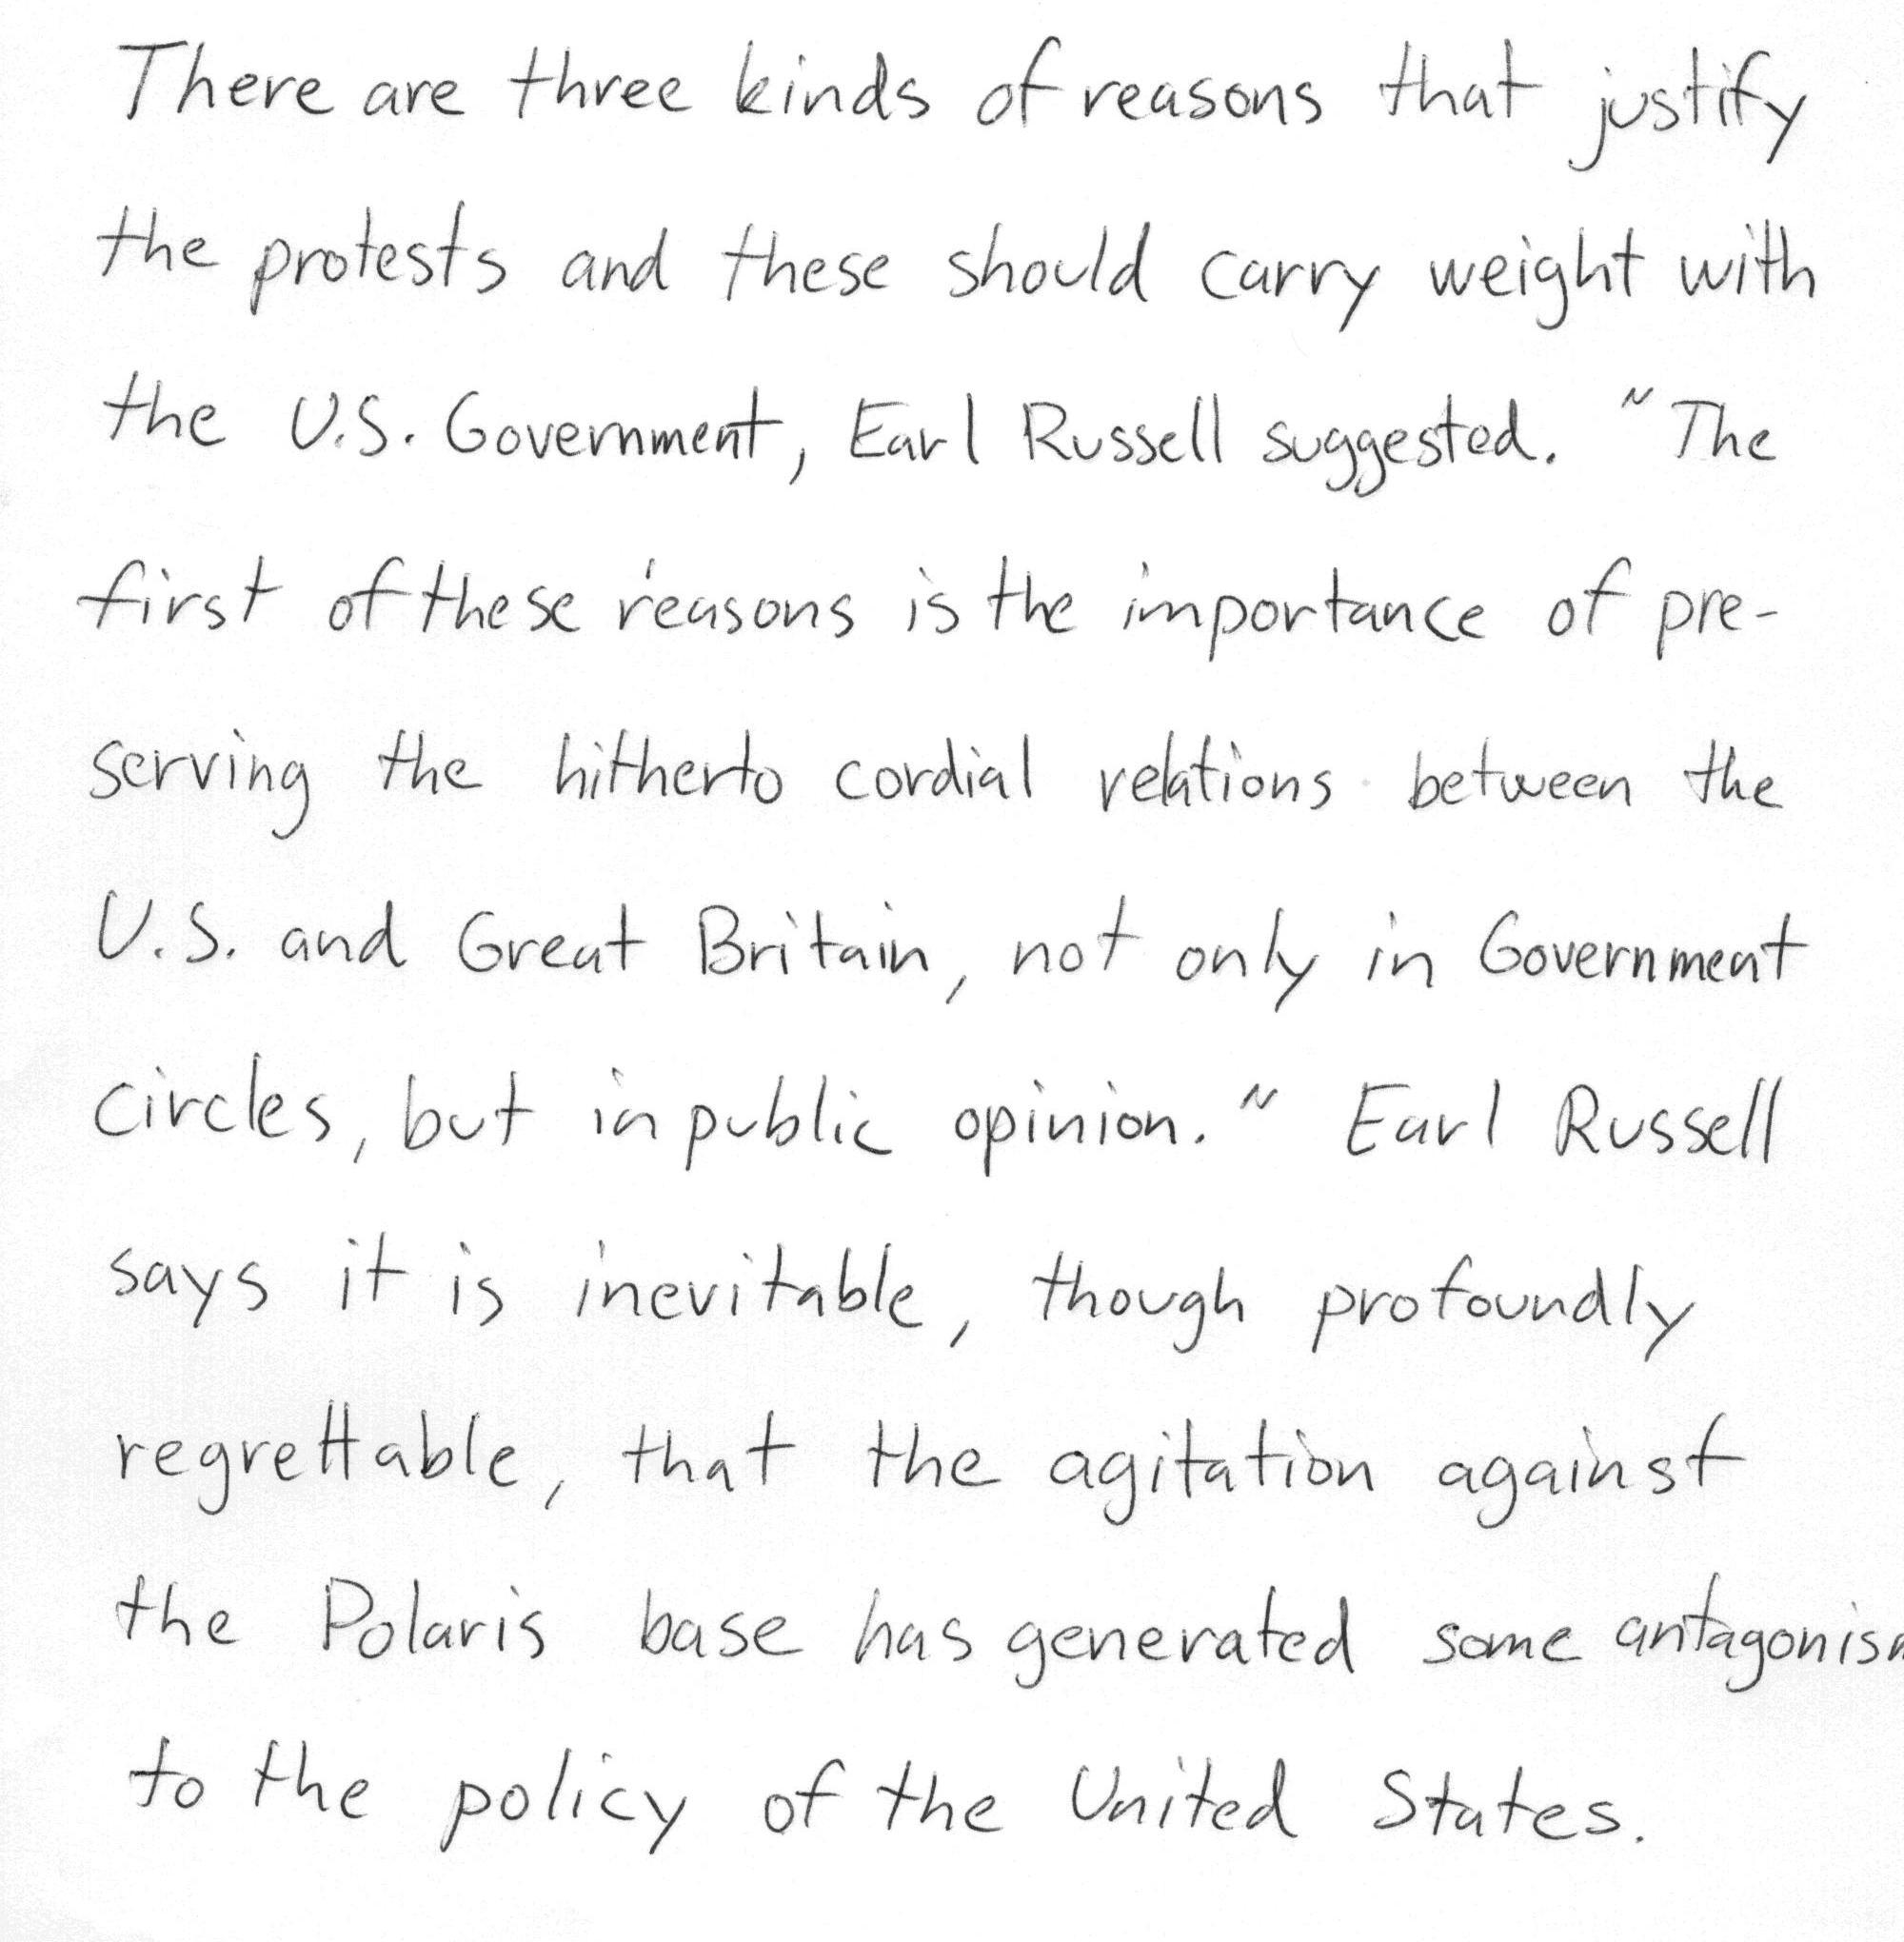 There are three kinds of reasons that justify
the protests and these should carry weight with
the U.S. Government, Earl Russell suggested. "The
first of these reasons is the importance of pre-
serving the hitherto cordial relations between the
U.S. and Great Britain, not only in Government
circles, but in public opinion." Earl Russell
says it is inevitable, though profoundly
regrettable, that the agitation against
the Polaris base has generated some antagonism
to the policy of the United States.